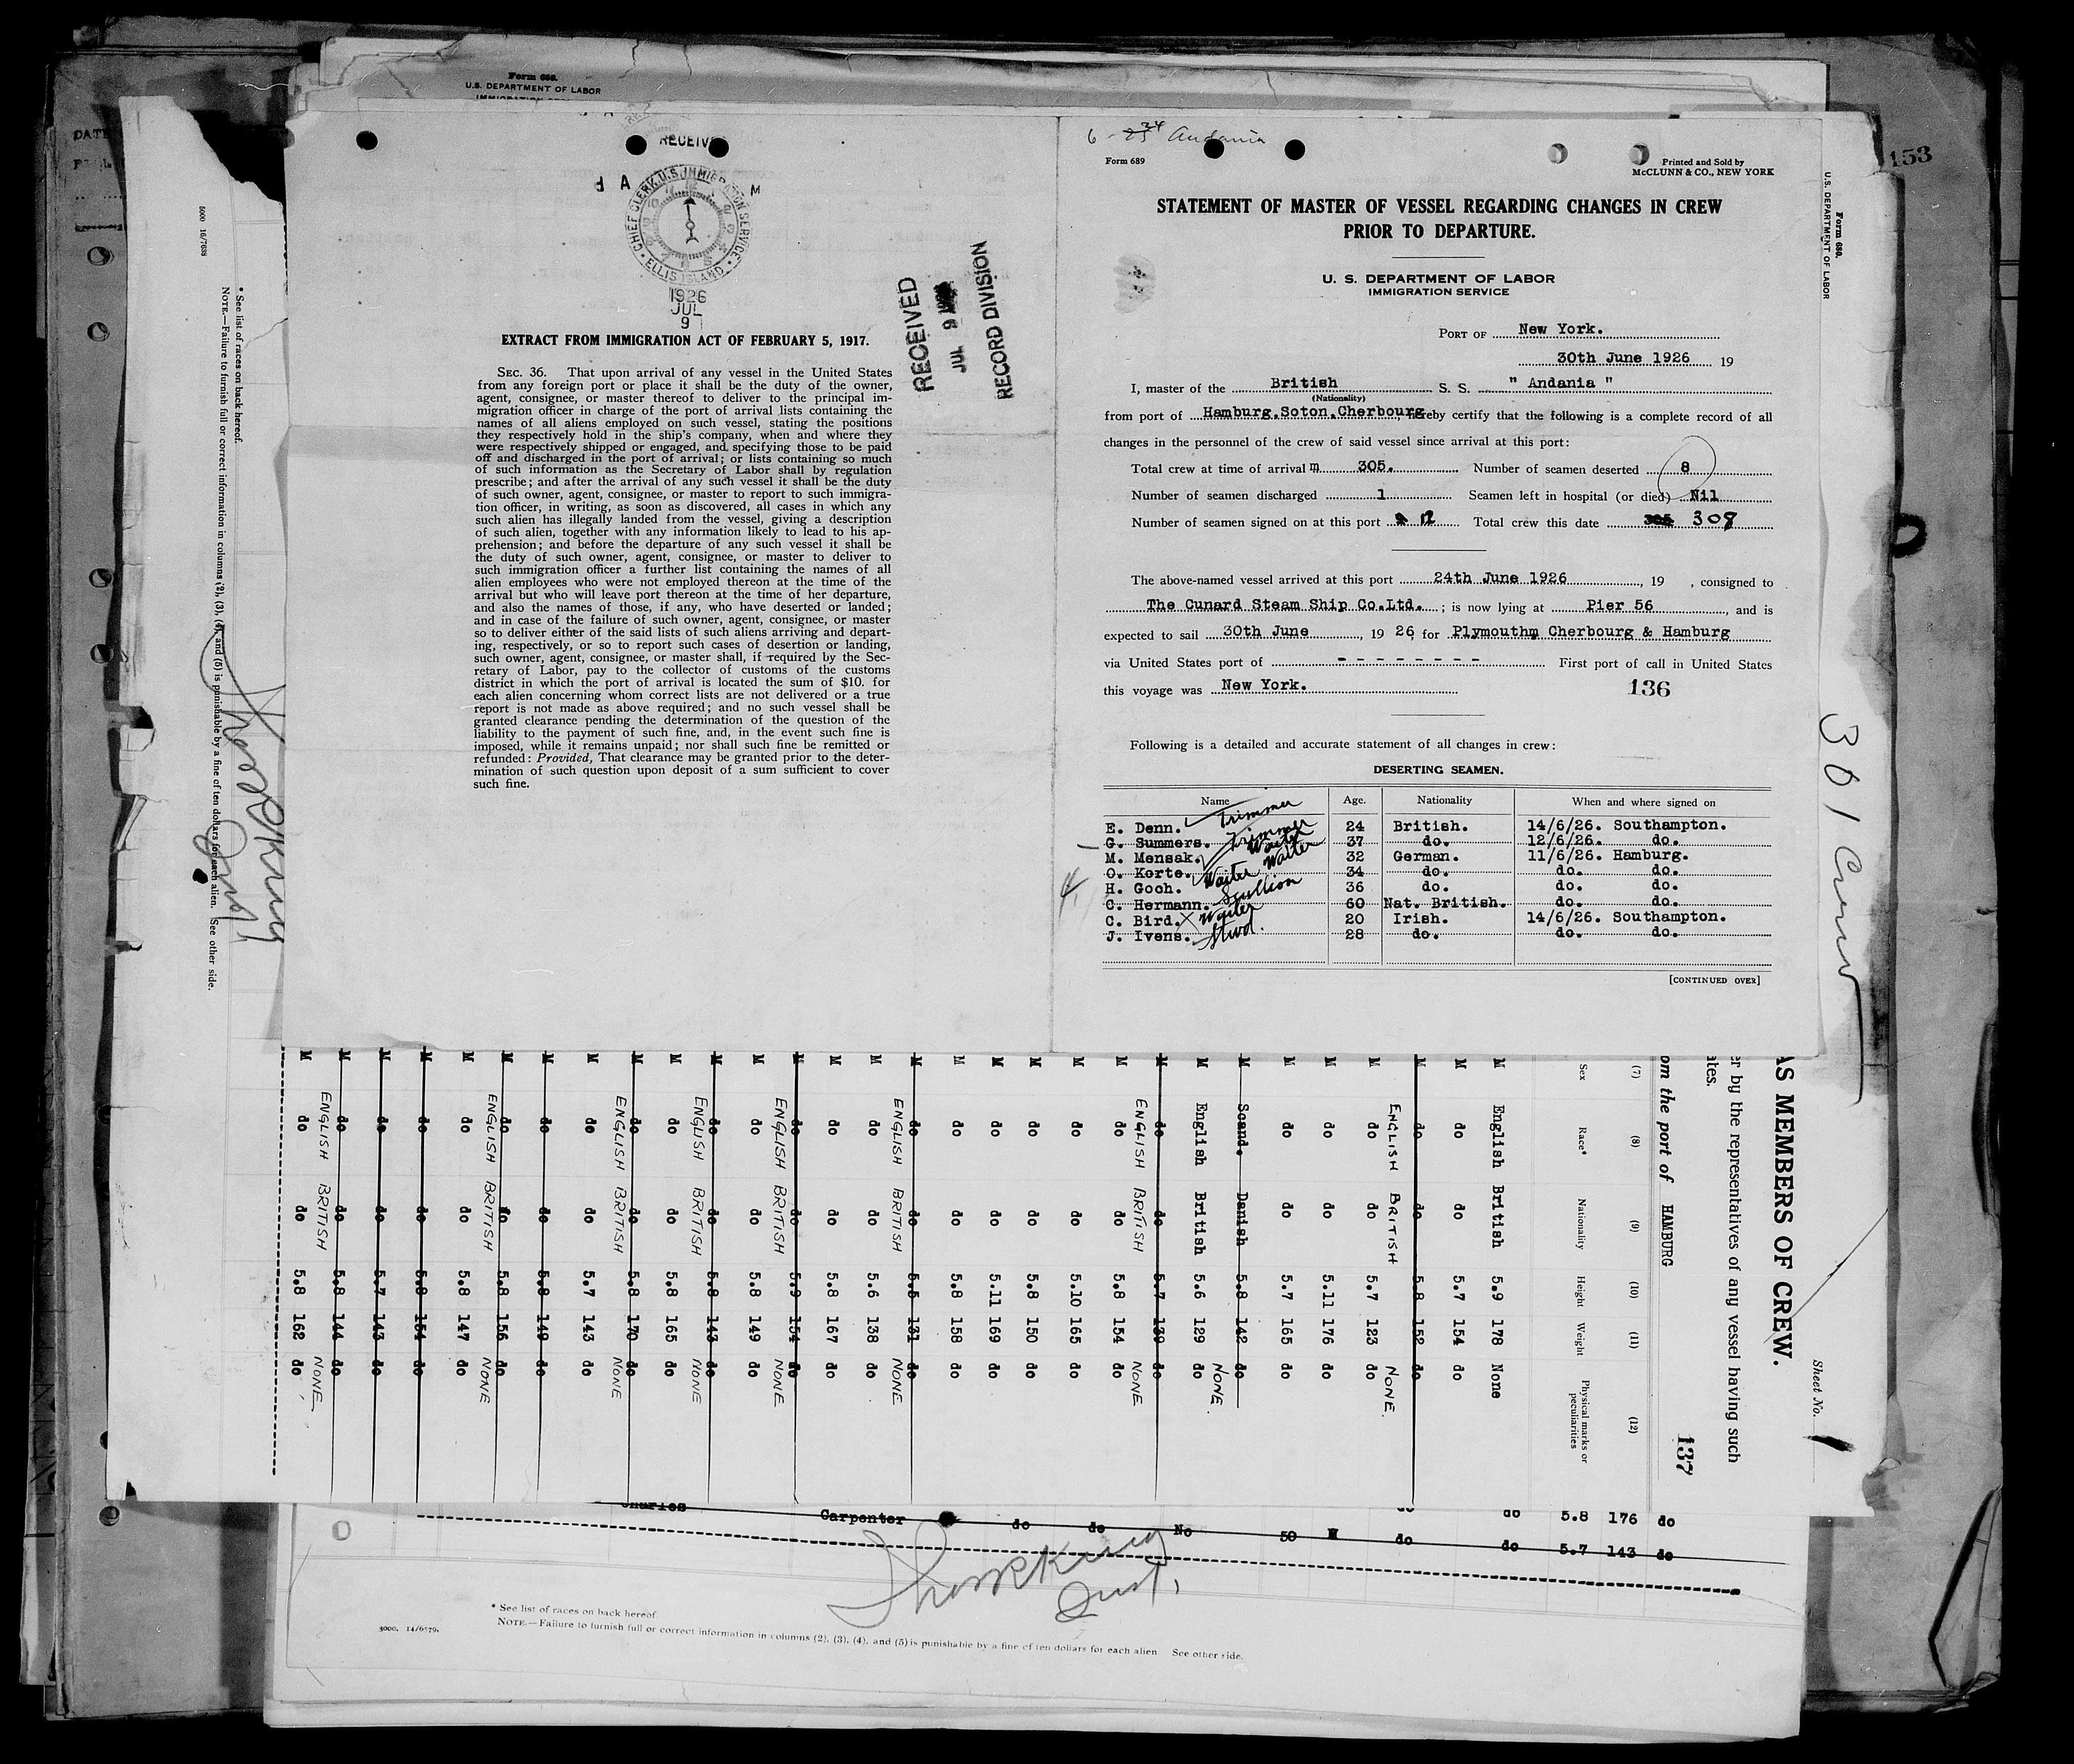 Form 680.
U.S. DEPARTMENT OF LABOR
153
RECEIV
CHIEF CLERK, U.S. IMMIGRATION SERVICE
ELLIS ISLAND
1926
JUL
9
RECEIVED
JUL 9
RECORD DIVISION
EXTRACT FROM IMMIGRATION ACT OF FEBRUARY 5, 1917.
SEC. 36. That upon arrival of any vessel in the United States
from any foreign port or place it shall be the duty of the owner,
agent, consignee, or master thereof to deliver to the principal im-
migration officer in charge of the port of arrival lists containing the
names of all aliens employed on such vessel, stating the positions
they respectively hold in the ship's company, when and where they
were respectively shipped or engaged, and specifying those to be paid
off and discharged in the port of arrival; or lists containing so much
of such information as the Secretary of Labor shall by regulation
prescribe; and after the arrival of any such vessel it shall be the duty
of such owner, agent, consignee, or master to report to such immigra-
tion officer, in writing, as soon as discovered, all cases in which any
such alien has illegally landed from the vessel, giving a description
of such alien, together with any information likely to lead to his ap-
prehension; and before the departure of any such vessel it shall be
the duty of such owner, agent, consignee, or master to deliver to
such immigration officer a further list containing the names of all
alien employees who were not employed thereon at the time of the
arrival but who will leave port thereon at the time of her departure,
and also the names of those, if any, who have deserted or landed;
and in case of the failure of such owner, agent, consignee, or master
so to deliver either of the said lists of such aliens arriving and depart-
ing, respectively, or so to report such cases of desertion or landing,
such owner, agent, consignee, or master shall, if required by the Sec-
retary of Labor, pay to the collector of customs of the customs
district in which the port of arrival is located the sum of $10. for
each alien concerning whom correct lists are not delivered or a true
report is not made as above required; and no such vessel shall be
granted clearance pending the determination of the question of the
liability to the payment of such fine, and, in the event such fine is
imposed, while it remains unpaid; nor shall such fine be remitted or
refunded: Provided, That clearance may be granted prior to the deter-
mination of such question upon deposit of a sum sufficient to cover
such fine.
6 24 Andania
Form 689
Printed and Sold by
McCLUNN & CO., NEW YORK
STATEMENT OF MASTER OF VESSEL REGARDING CHANGES IN CREW
PRIOR TO DEPARTURE.
U. S. DEPARTMENT OF LABOR
IMMIGRATION SERVICE
PORT OF New York.
30th June 1926 19
I, master of the British S. S. " Andania "
(Nationality)
from port of Hamburg.Soton.Cherbourg, hereby certify that the following is a complete record of all
changes in the personnel of the crew of said vessel since arrival at this port:
Total crew at time of arrival m 305. Number of seamen deserted 8
Number of seamen discharged 1 Seamen left in hospital (or died) Nil
Number of seamen signed on at this port 12 Total crew this date 305 308
The above-named vessel arrived at this port 24th June 1926, 19 , consigned to
The Cunard Steam Ship Co.Ltd. ; is now lying at Pier 56, and is
expected to sail 30th June, 19 26, for Plymouthm Cherbourg & Hamburg
via United States port of - - - - - - - - First port of call in United States
this voyage was New York. 136
Following is a detailed and accurate statement of all changes in crew:
DESERTING SEAMEN.
Name Age. Nationality When and where signed on
E. Denn. Trimmer 24 British. 14/6/26. Southampton.
G. Summers. Trimmer 37 do. 12/6/26. do.
M. Mensak. Waiter 32 German. 11/6/26. Hamburg.
O. Korte. Waiter 34 do. do. do.
H. Goch. Waiter 36 do. do. do.
C. Hermann. Scullion 60 Nat. British. do. do.
C. Bird. Waiter 20 Irish. 14/6/26. Southampton.
J. Ivens. Stwd. 28 do. do. do.
[CONTINUED OVER]
Form 680.
U.S. DEPARTMENT OF LABOR
301 Crew
5000 16/7038
* See list of races on back hereof.
NOTE.—Failure to furnish full or correct information in columns (2), (3), (4), and (5) is punishable by a fine of ten dollars for each alien. See other side.
Sheet No. 1
AS MEMBERS OF CREW.
er by the representatives of any vessel having such
ates.
om the port of HAMBURG
137
(7) (8) (9) (10) (11) (12)
Sex Race* Nationality Height Weight Physical marks or peculiarities
M English British 5.9 178 None
M do do 5.7 154 do
M do do 5.8 152 do
ENGLISH BRITISH NONE.
M do do 5.7 123 do
M do do 5.11 176 do
M do do 5.7 165 do
M Scand. Danish 5.8 142 do
NONE.
M English British 5.6 129 do
M do do 5.7 139 do
ENGLISH BRITISH NONE
M do do 5.8 154 do
M do do 5.10 165 do
M do do 5.8 150 do
M do do 5.11 169 do
M do do 5.8 158 do
M do 5.5 131 do
ENGLISH BRITISH NONE
M do do 5.6 138 do
M do do 5.8 167 do
M do do 5.9 154 do
ENGLISH BRITISH NONE
M do do 5.8 149 do
M do do 5.8 143 do
ENGLISH BRITISH NONE
M do do 5.8 165 do
M do do 5.8 170 do
ENGLISH BRITISH NONE
M do do 5.7 143 do
M do do 5.8 149 do
M do do 5.8 156 do
ENGLISH BRITISH NONE
M do do 5.8 147 do
M do do 5.8 154 do
M do do 5.7 143 do
M do do 5.8 144 do
ENGLISH BRITISH NONE
M do do 5.8 162 do
Charles do do 5.8 176 do
Carpenter do do No 50 M do do 5.7 143 do
* See list of races on back hereof.
NOTE.—Failure to furnish full or correct information in columns (2), (3), (4), and (5) is punishable by a fine of ten dollars for each alien See other side.
5000. 14/6579.